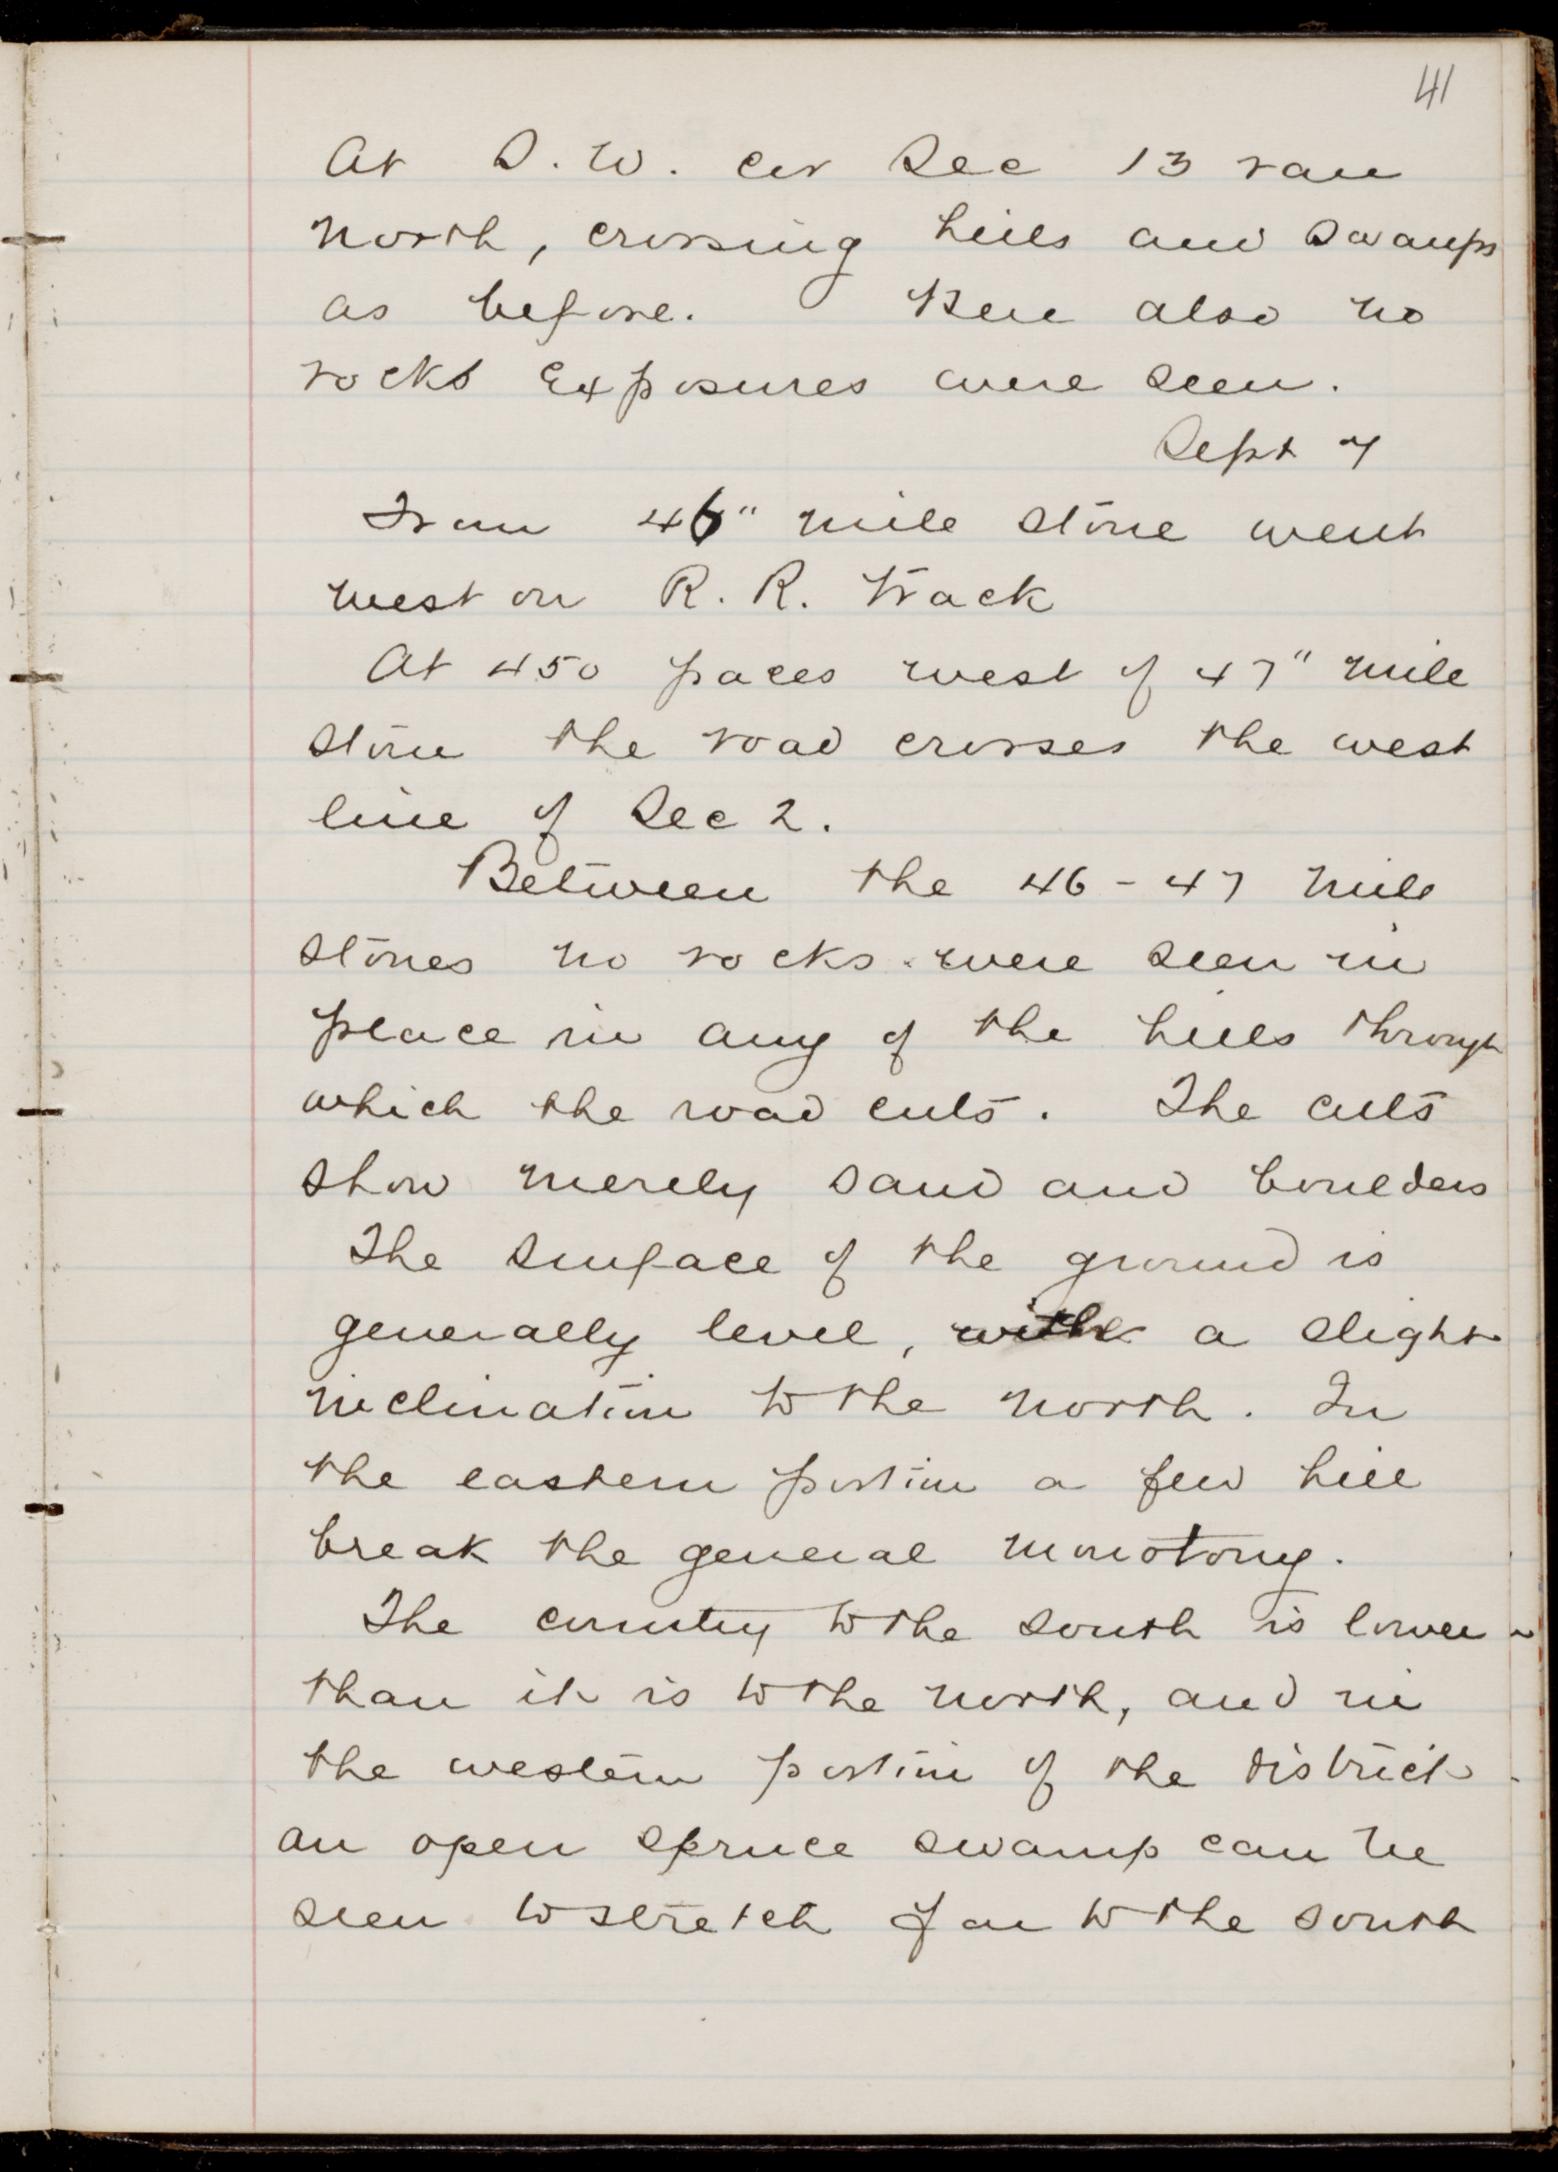 41
At S. W. cor Sec 13 ran
north, crossing hills and swamps
as before. Here also no
rocks exposures were seen.
Sept 7
From 46" mile stone went
west on R. R. track
At 450 paces west of 47" mile
stone the road crosses the west
line of Sec 2.
Between the 46 - 47 mile
stones no rocks were seen in
place in any of the hills through
which the road cuts. The cuts
show merely sand and boulders
The surface of the ground is
generally level, with a slight
inclination to the north. In
the eastern portion a few hill
break the general monotony.
The country to the south is lower
than it is to the north, and in
the western portion of the district
an open spruce swamp can be
seen to stretch far to the south